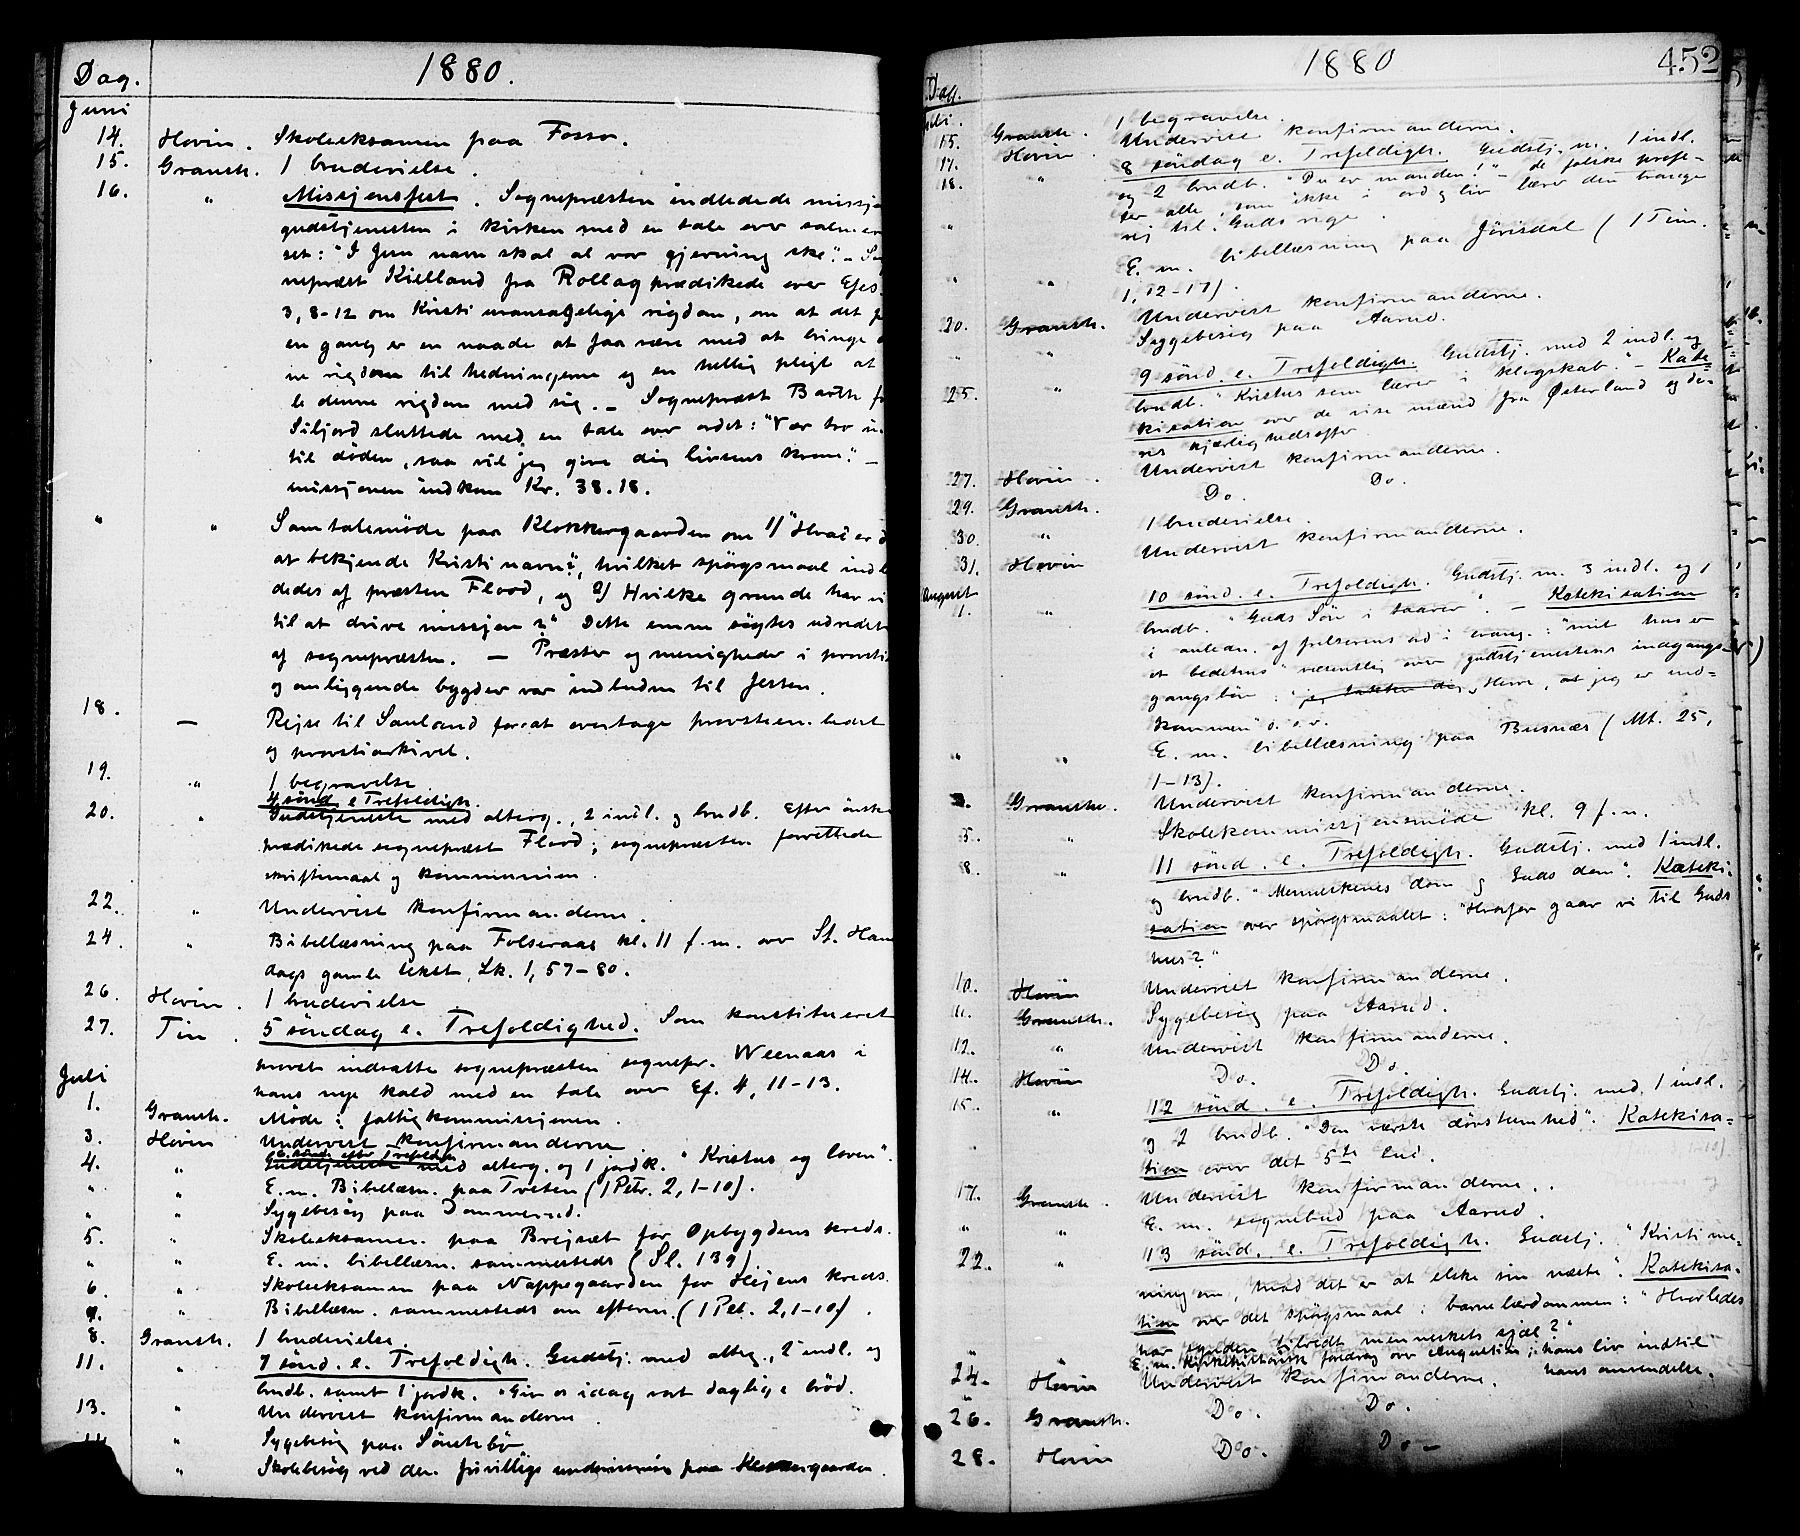 Dag. 1880.
Juni
14. Hovin. Skoleeksamen paa Fosso.
15. Gransh. 1 brudevielse.
16. " Missjonsfest. Sognepræsten indledede missjo
gudstjenesten i kirken med en tale over salmever
set: "I Jesu navn skal al vor gjerning ske". – So
nepræst Kielland fra Rollag prædikede over Efes.
3, 8-12 om Kristi uransagelige rigdom, om at det
en gang er en naade at faa være med at bringe
ne rigdom til hedningerne og en hellig pligt at
le denne rigdom med sig. – Sognepræst Barth f
Siljord sluttede med en tale over ordet: "Vær tro in
til døden, saa vil jeg give dig livsens krone". –
missjonen indkom Kr. 38.18.
" " Samtalemøde paa Klokkergaarden om 1) "Hvad er d
at bekjende Kristi navn?", hvilket spørgsmaal indl
dedes af præsten Flood, og 2) Hvilke grunde har vi
til at drive missjon?" Dette emne søgtes udredet
af sognepræsten. — Præster og menigheder i provsti
og omliggende bygder var indbudne til festen.
18. — Rejse til Sauland for at overtage provstiembedet
og provstiarkivet.
19. " 1 begravelse
4 sønd. e Trefoldigh.
20. " Gudstjeneste med alterg., 2 indl. og brudb. Efter ønske
prædikede sognepræst Flood; sognepræsten forrettede
skriftemaal og kommunion.
22. " Undervist konfirmanderne.
24. " Bibellæsning paa Folseraas kl. 11 f.m. over St. Han
dags gamle tekst, Lk. 1, 57-80.
26. Hovin. 1 brudevielse
27. Tin. 5 søndag e. Trefoldighed. Som konstitueret
provst indsatte sognepræsten sognepr. Weenaas i
hans nye kald med en tale over Ef. 4, 11-13.
Juli
1. Gransh. Møde i fattigkommissjonen.
3. Hovin Undervist konfirmanderne
6 sønd. efter Trefoldigh.
4. " Gudstjeneste med alterg. og 1 jordk. "Kristus og loven".
" " E.m. Bibellæsn. paa Tveten (1 Petr. 2, 1-10).
" " Sygebesøg paa Dommerud.
5. " Skoleeksamen paa Brejsæt for Opbygdens kreds.
" " E.m. bibellæsn. sammesteds (Sl. 139).
6. " Skoleeksamen paa Nappegaarden for Hejens kreds.
" Bibellæsn. sammesteds om efterm. (1 Pet. 2, 1-10).
8. Gransh. 1 brudevielse
11. " 7 sønd. e. Trefoldigh. Gudstj. med alterg., 2 indl. og
brudb. samt 1 jordk. "Giv os idag vort daglige brød.
13. " Undervist konfirmanderne.
" Sygebesøg paa
" Skolebesøg ved den frivillige undervisning paa
Dag. 1880 452
15. Gransh. 1 begravelse.
17. Hovin Undervist konfirmanderne.
18. " 8 søndag e. Trefoldigh. Gudstj. m. 1 indl.
og 2 brudb. "Du er manden!" – de falske profe-
ter alle, som ikke i ord og liv lærer den trange
vej til Guds rige.
" E.m. bibellæsning paa Jörisdal (1 Tim.
1, 12-17).
" " Undervist konfirmanderne.
20. Gransh. Sygebesøg paa Aarud.
25. " 9 sønd. e. Trefoldigh. Gudstj. med 2 indl. og
brudb. "Kristus som lærer i klogskab". – Kate-
kisation over de vise mænd fra Østerland og de-
res kjærlighedsoffer.
27. Hovin. Undervist konfirmanderne.
29. Gransh. Do. Do.
30. " 1 brudevielse.
31. Hovin Undervist konfirmanderne.
August
1. " 10 sønd. e. Trefoldigh. Gudstj. m. 3 indl. og 1
brudb. "Guds Søn i taarer". – Katekisation
i anledn. af frelserens ord i evang.: "mit hus er
et bedehus" væsentlig over gudstjenestens indgangs-
gangsbøn: "Herre, jeg er ind-
kommen" o.s.v.
" " E.m. bibellæsning paa Busnæs (Mt. 25,
1-13).
3. Gransh. Undervist konfirmanderne.
5. " Skolekommissjonsmøde kl. 9 f.m.
8. " 11 sønd. e. Trefoldigh. Gudstj. med 1 indl.
og brudb. "Menneskenes dom og Guds dom". Kateki-
sation over spørgsmaalet: "Hvorfor gaar vi til Guds
hus?"
10. Hovin Undervist konfirmanderne.
11. Gransh. Sygebesøg paa Aarud.
12. " Undervist konfirmanderne.
14. Hovin Do. Do.
15. " 12 sønd. e. Trefoldigh. Gudstj. med 1 indl.
og 2 brudb. "Den værste døvstumhed". Katekisa-
" tion over det 5te bud.
17. Gransh. Undervist konfirmanderne.
" " E.m. sognebud paa Aarud.
22. " 13 sønd. e. Trefoldigh. Gudstj. "Kristi me-
ning om, hvad det er at elske sin næste". Katekisa-
tion over det spørgsmaal i barnelærdommen: "Hvorledes
har synden tilredt menneskets sjæl?"
" " E.m. kirkehistorisk foredrag over Augustin; hans liv indtil
hans omvendelse.
24. Hovin Undervist konfirmanderne.
26. Gransh. Do. Do.
28. Hovin Do. Do–